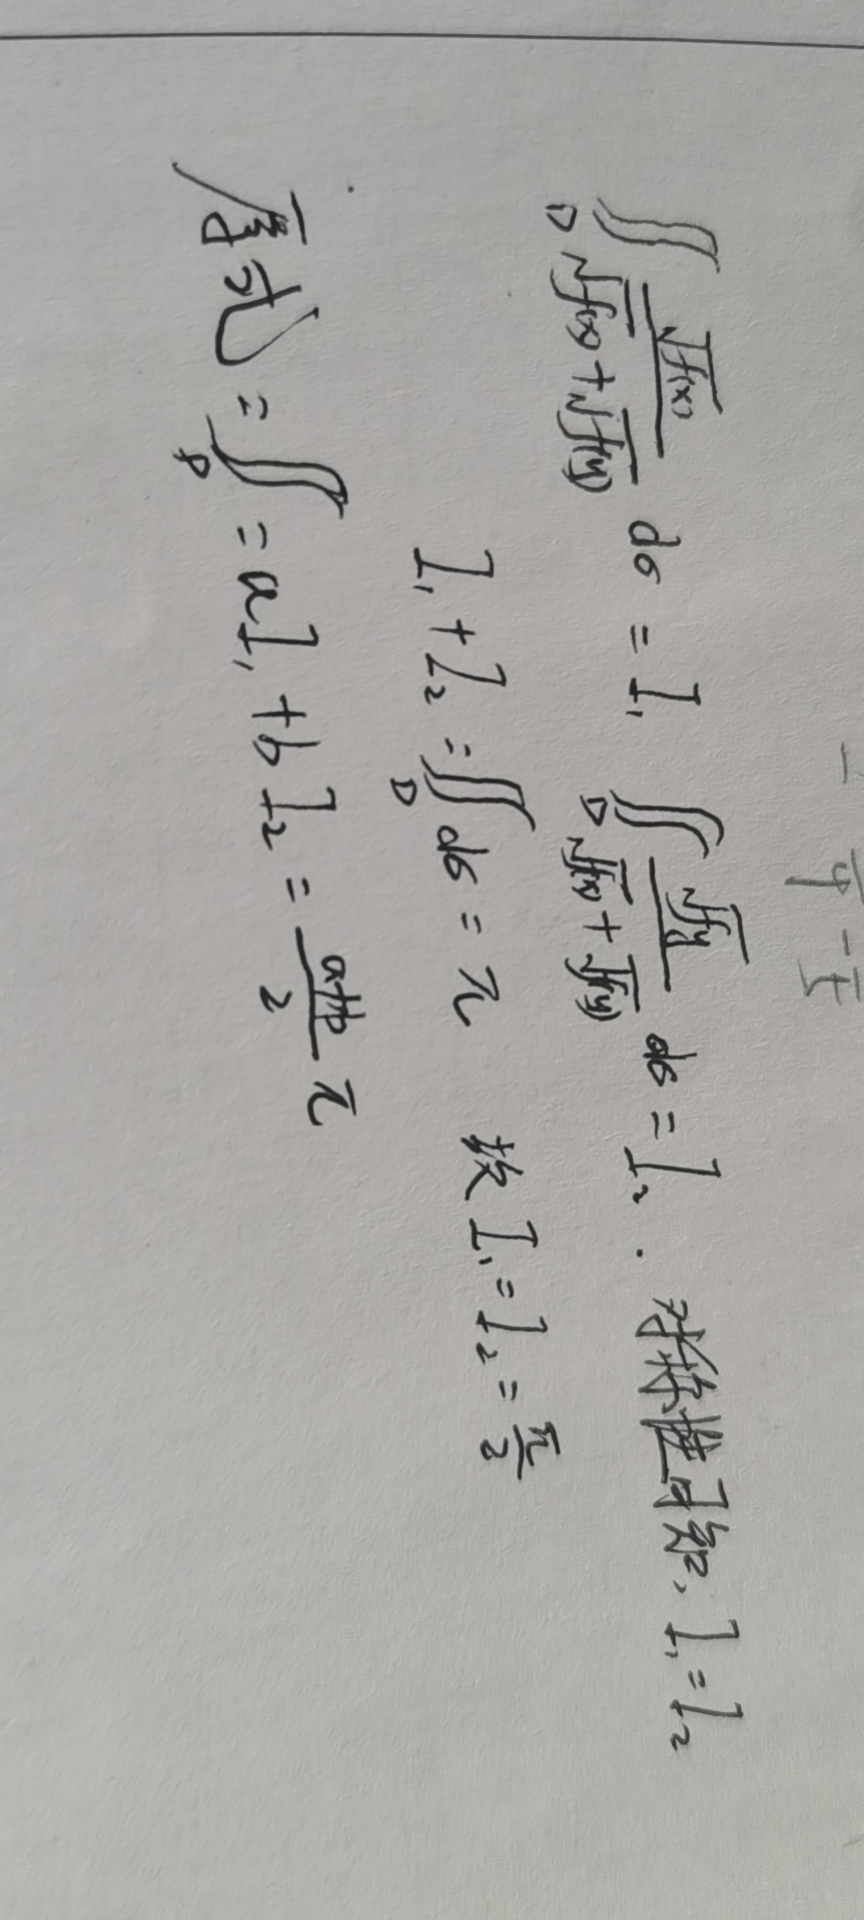 ∬_D √f(x) / (√f(x) + √f(y)) dσ = I₁  ∬_D √f(y) / (√f(x) + √f(y)) dσ = I₂. 对称性可知, I₁ = I₂
I₁ + I₂ = ∬_D dσ = π  故 I₁ = I₂ = π/2
原式 = ∬_D = aI₁ + bI₂ = (a+b)/2 π